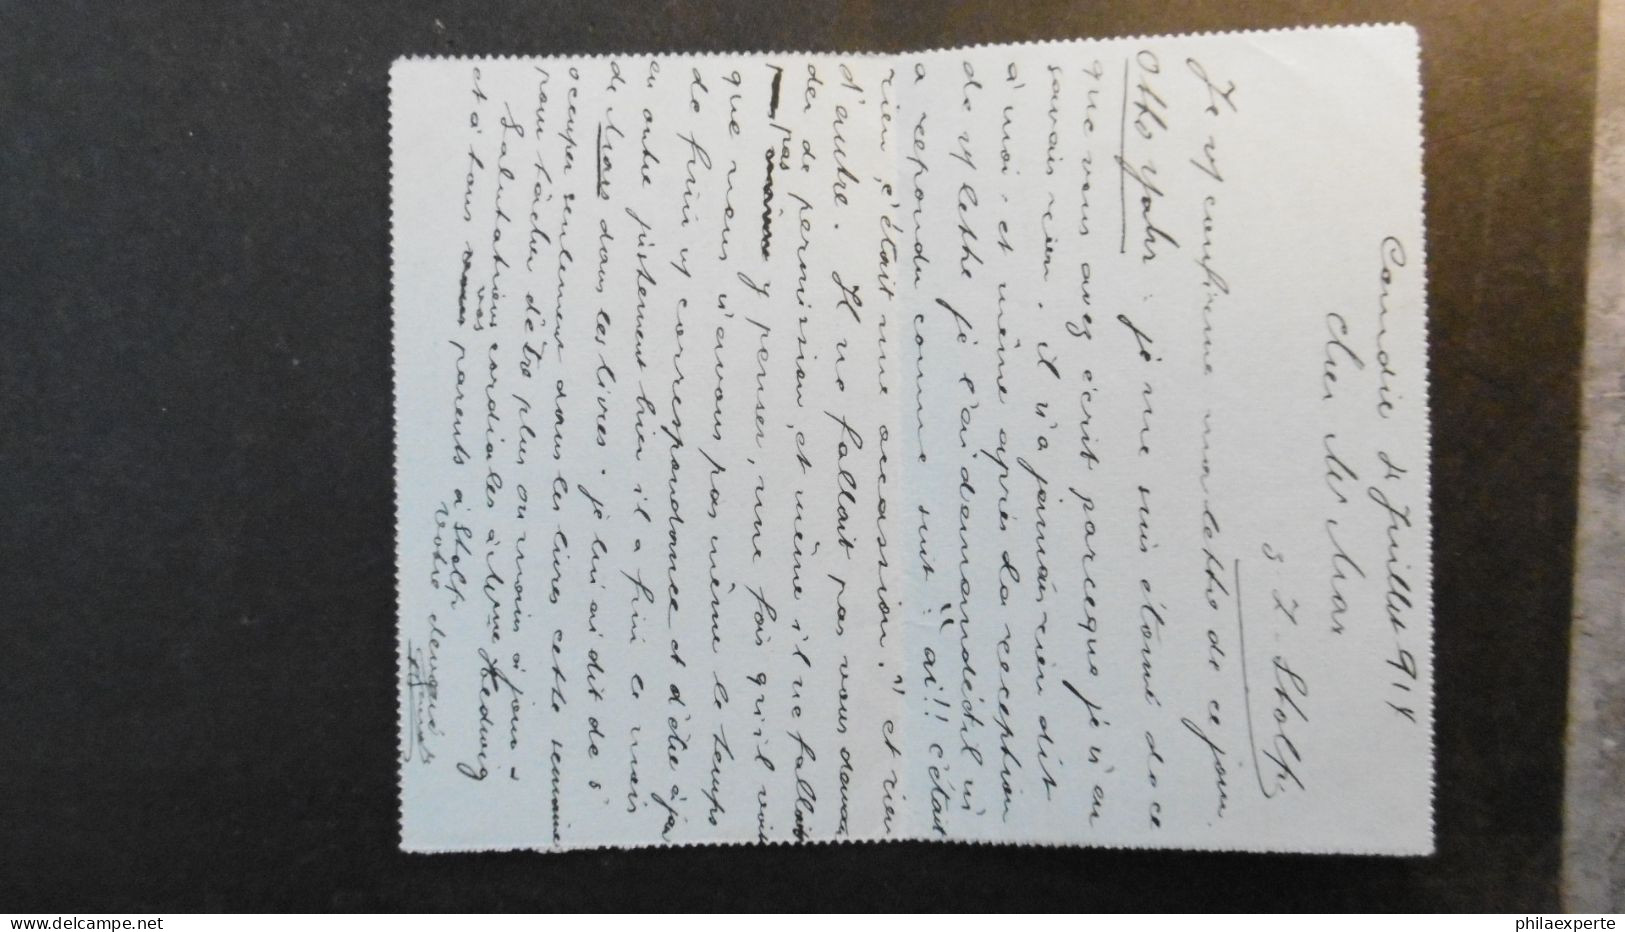 Candie 4 Juillet 914
Cher Mr Max
s. Z. Stolp
Je vs confirme ma lettre de ce jour.
Otto Yahr : je me suis étonné de ce
que vous avez écrit parceque je n'en
savais rien. il n'a jamais rien dit
à moi. et même après la reception
de vs lettre je l'ai demandé; il m'
a repondu comme suit : "ai!! c'était
rien, c'était une occasion." et rien
d'autre. Il ne fallait pas vous deman
der de permission, et même s'il ne fallait
pas y penser, une fois qu'il voit
que nous n'avons pas même le temps
de finir vs correspondance et d'être à jour
en outre justement bien il a fini ce mois
de Mars dans les livres. je lui ai dit de s'
occuper seulement dans les livres cette semaine
pour tâcher d'être plus ou moins à jour.
Salutations cordiales à Mme Hedwig
et à tous vos parents à Stolp
Votre devoué
philaexperte